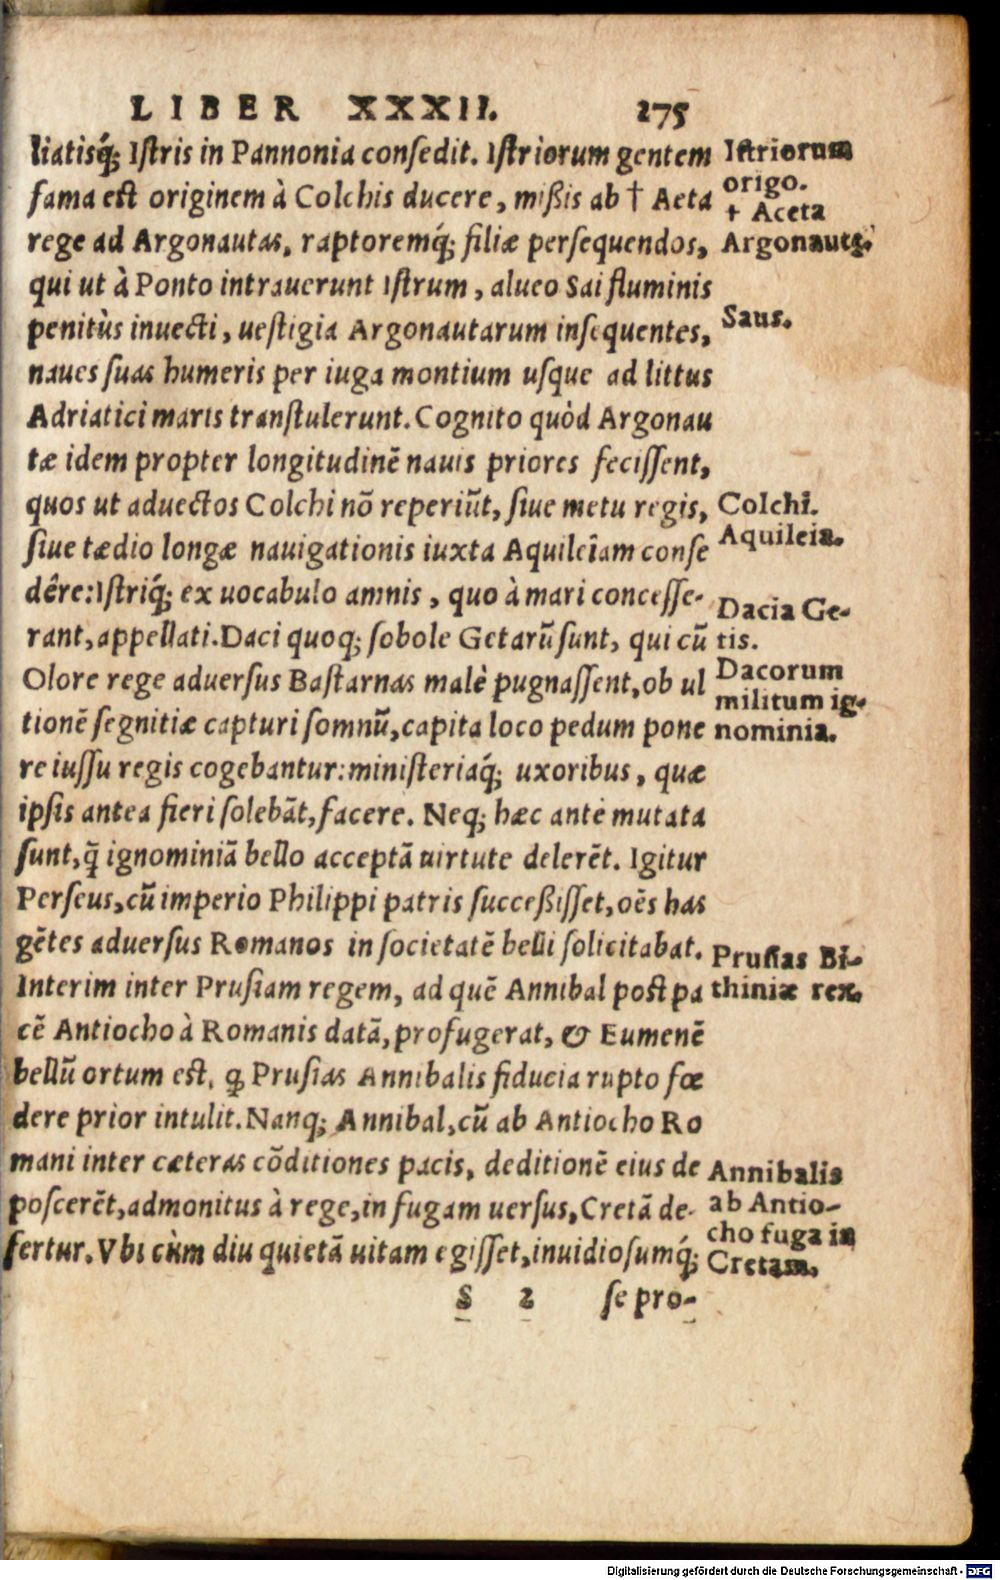 LIBER XXXII. 275
liatisq́; Istris in Pannonia consedit. Istriorum gentem
fama est originem à Colchis ducere, mißis ab † Aeta
rege ad Argonautas, raptoremq́; filiæ persequendos,
qui ut à Ponto intrauerunt Istrum, alueo Sai fluminis
penitùs inuecti, uestigia Argonautarum insequentes,
naues suas humeris per iuga montium usque ad littus
Adriatici maris transtulerunt. Cognito quòd Argonau
tæ idem propter longitudinē nauis priores fecissent,
quos ut aduectos Colchi nō reperiūt, siue metu regis,
siue tædio longæ nauigationis iuxta Aquileiam conse
dêre: Istriq́; ex uocabulo amnis, quo à mari concesse-
rant, appellati. Daci quoq; sobole Getarū sunt, qui cū
Olore rege aduersus Bastarnas malè pugnassent, ob ul
tionē segnitiæ capturi somnū, capita loco pedum pone
re iussu regis cogebantur: ministeriaq́; uxoribus, quæ
ipsis antea fieri solebāt, facere. Neq; hæc ante mutata
sunt, q̄ ignominiā bello acceptā uirtute delerēt. Igitur
Perseus, cū imperio Philippi patris succeßisset, oēs has
gētes aduersus Romanos in societatē belli solicitabat.
Interim inter Prusiam regem, ad quē Annibal post pa
cē Antiocho à Romanis datā, profugerat, & Eumenē
bellū ortum est, ꝙ Prusias Annibalis fiducia rupto fœ
dere prior intulit. Nanq; Annibal, cū ab Antiocho Ro
mani inter cæteras cōditiones pacis, deditionē eius de
poscerēt, admonitus à rege, in fugam uersus, Cretā de-
fertur. Vbi cùm diu quietā uitam egisset, inuidiosumq́;
S 2 se pro-
Istriorum
origo.
+ Aceta
Argonautę.
Saus.
Colchi.
Aquileia.
Dacia Ge-
tis.
Dacorum
militum ig-
nominia.
Prusias Bi-
thiniæ rex.
Annibalis
ab Antio-
cho fuga in
Cretam.
Digitalisierung gefördert durch die Deutsche Forschungsgemeinschaft - DFG